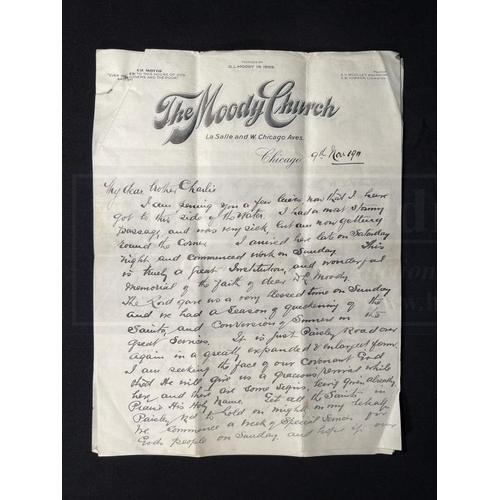 FOUNDED BY
D.L. MOODY IN 1858
OUR MOTTO
"EVER WELCOME TO THIS HOUSE OF GOD
The Moody Church
La Salle and W. Chicago Aves.
Chicago, 9th Nov 1911
My dear brother Charlie
I am sending you a few lines now that I have
got to this side of the Water. I had a most stormy
passage, and was very sick, but am now getting
round the corner. I arrived here late on Saturday
night and commenced work on Sunday. This
is truly a great Institution, and wonderful
Memorial of the faith of dear Moody.
The Lord gave us a very blessed time on Sunday
and we had a Season of quickening of the
Saints, and Conversion of Sinners in the
great Services. It is just Paisley Road over
again in a greatly expanded & enlarged form.
I am seeking the face of our Covenant God
that He will give us a gracious revival while
here, and there are some signs being given already,
Praise His Holy Name. Let all the Saints in
Paisley Rd to hold on mightily on my behalf.
We commence a Week of Special Services for
Gods people on Sunday and